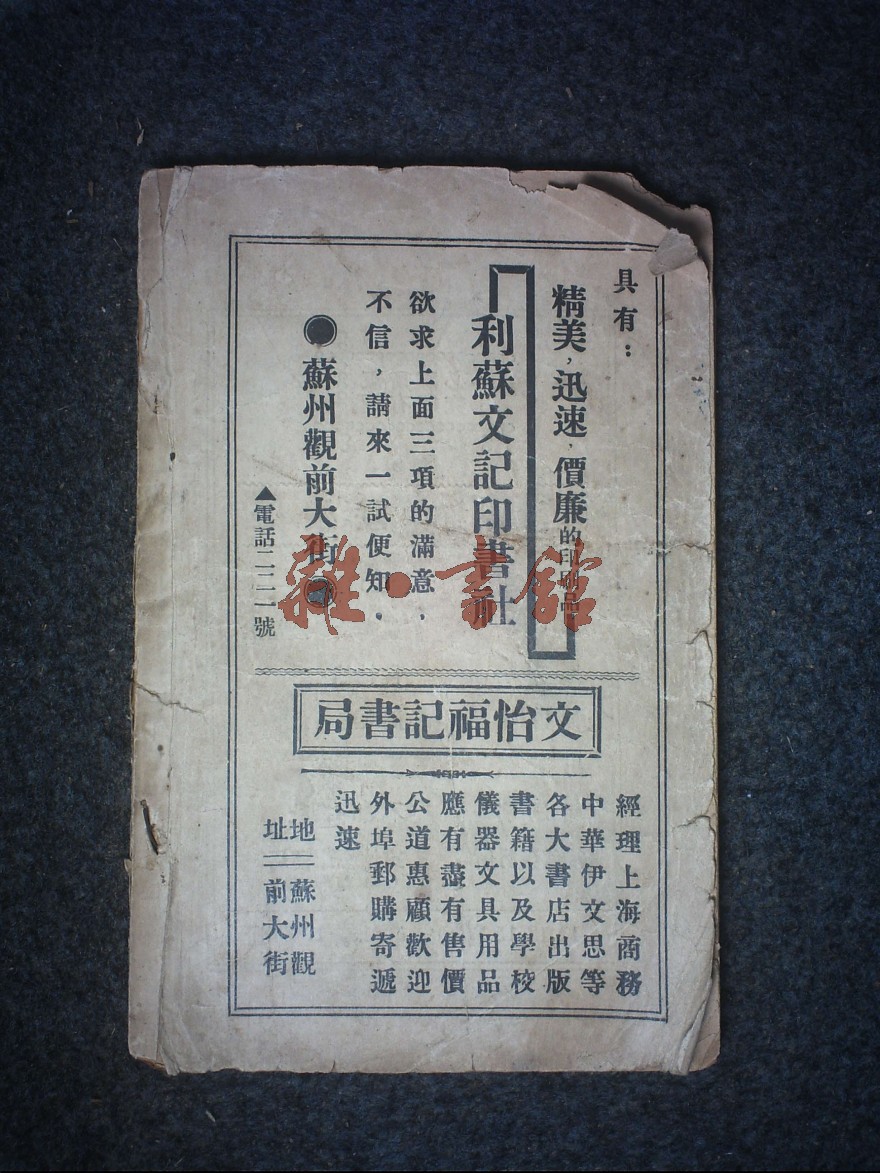 具有：
精美，迅速，價廉的印刷品
利蘇文記印書社
欲求上面三項的滿意，
不信，請來一試便知，
●蘇州觀前大街●
▲電話二二一號
雜·書館
文怡福記書局
經理上海商務
中華伊文思等
各大書店出版
書籍以及學校
儀器文具用品
應有盡有售價
公道惠顧歡迎
外埠郵購寄遞
迅速
地址＝蘇州觀前大街